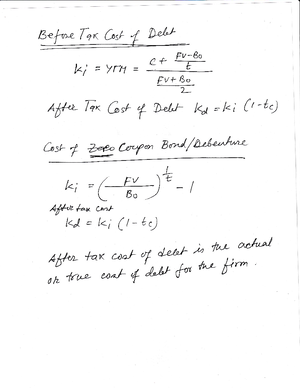 Before Tax Cost of Debt
Ki = YTM = (C + (FV-B0)/t) / ((FV+B0)/2)
After Tax Cost of Debt Kd = Ki (1-tc)
Cost of Zero Coupon Bond/Debenture
Ki = (FV/B0)^(1/t) - 1
After tax cost
Kd = Ki (1-tc)
After tax cost of debt is the actual
or true cost of debt for the firm.